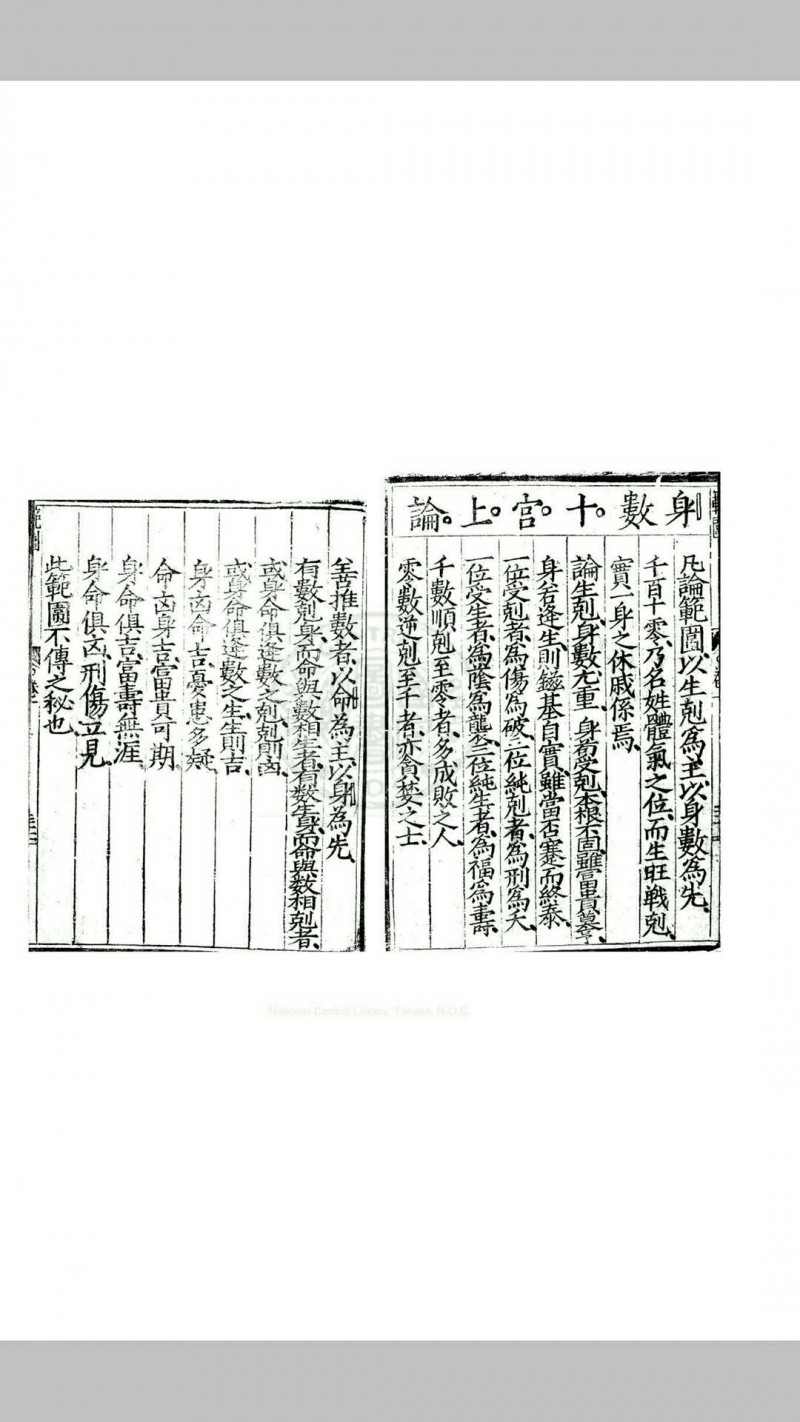 身數十宮上論
凡論範圍以生剋為主以身數為先
千百十零乃名姓體氣之位而生旺戰剋
實一身之休戚係焉
論生剋身數尤重身若受剋本根不固雖富貴
身若逢生則鎡基自實雖當否蹇而終泰
一位受剋者為傷為破二位純剋者為刑為夭
一位受生者為蔭為襲二位純生者為福為壽
千數順剋至零者多成敗之人
零數逆剋至千者亦貪婪之士
善推數者以命為主以身為先
有數剋身而命與數相生者有數生身而命與數相剋者
或身命俱逢數之剋剋則凶
或身命俱逢數之生生則吉
身凶命吉憂患多疑
命凶身吉富貴可期
身命俱吉富壽無涯
身命俱凶刑傷立見
此範圍不傳之秘也
範圍
National Central Library, Taiwan, R.O.C.